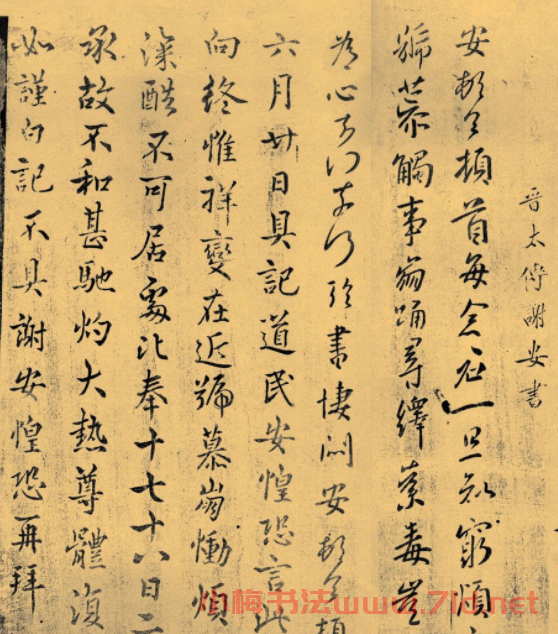 晉太傅謝安書
安頓首頓首每念君一旦知窮煩
號慕觸事崩踊尋繹荼毒豈
為心奈何奈何臨書悽悶安頓首頓
六月廿日具記道民安惶恐言此
向終惟祥變在近號慕崩慟煩
深酷不可居處比奉十七十八日二
承故不和甚馳灼大熱尊體復
如謹白記不具謝安惶恐再拜
小梅书法